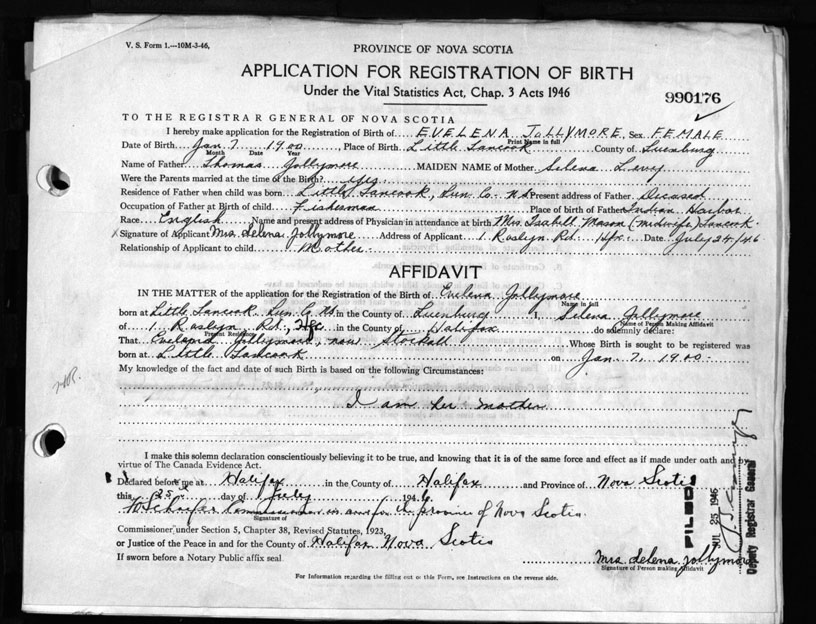 V. S. Form 1.—10M-3-46.
PROVINCE OF NOVA SCOTIA
APPLICATION FOR REGISTRATION OF BIRTH
Under the Vital Statistics Act, Chap. 3 Acts 1946
990176
TO THE REGISTRAR GENERAL OF NOVA SCOTIA
I hereby make application for the Registration of Birth of EVELENA JOLLYMORE Sex FEMALE
Print Name in full
Date of Birth Jan 7 1900 Place of Birth Little Tancook County of Luenburg
Month Date Year
Name of Father Thomas Jollymore MAIDEN NAME of Mother Selena Levy
Were the Parents married at the time of the Birth? Yes
Residence of Father when child was born Little Tancook, Lun. Co. N.S. Present address of Father Deceased
Occupation of Father at Birth of child Fisherman Place of birth of Father Indian Harbor
Race English Name and present address of Physician in attendance at birth Mrs. Isabell Mason (midwife) Tancook
Signature of Applicant Mrs. Selena Jollymore Address of Applicant 1 Roslyn Rd. Hfx. Date July 24/46
Relationship of Applicant to child Mother
AFFIDAVIT
IN THE MATTER of the application for the Registration of the Birth of Evelena Jollymore
Name in full
born at Little Tancook Lun. Co. N.S. in the County of Luenburg I, Selena Jollymore
Name of Person Making Affidavit
of 1 Roslyn Rd., Hfx in the County of Halifax do solemnly declare:
Present Residence
That Jollymore, now Whose Birth is sought to be registered was
born at Little Tancook on Jan 7, 1900
My knowledge of the fact and date of such Birth is based on the following Circumstances:
I am her mother
I make this solemn declaration conscientiously believing it to be true, and knowing that it is of the same force and effect as if made under oath and by
virtue of The Canada Evidence Act.
Declared before me at Halifax in the County of Halifax and Province of Nova Scotia
this 25 day of July 1946
Commissioner in and for the province of Nova Scotia
Signature of
Commissioner under Section 5, Chapter 38, Revised Statutes, 1923,
or Justice of the Peace in and for the County of Halifax Nova Scotia
If sworn before a Notary Public affix seal
Mrs Selena Jollymore
Signature of Person making Affidavit
For Information regarding the filling out of this Form, see Instructions on the reverse side.
FILED
JUL 25 1946
Deputy Registrar General